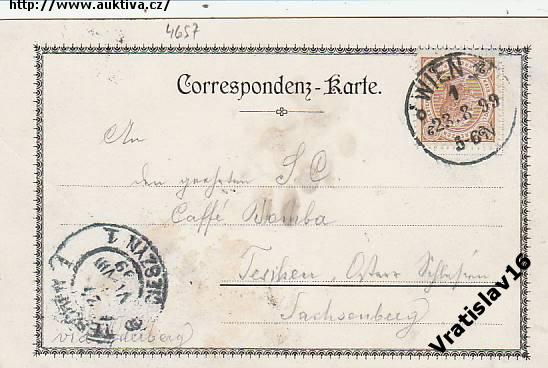 http://www.auktiva.cz/
4657
Correspondenz-Karte.
WIEN
1
23.8.99
5-6N
An
den geehrten S.C.
Caffé Bamba
Teschen, Österr Schlesien
Sachsenberg
via Oderberg
CIESZYN 1
VIII
99
Vratislav16